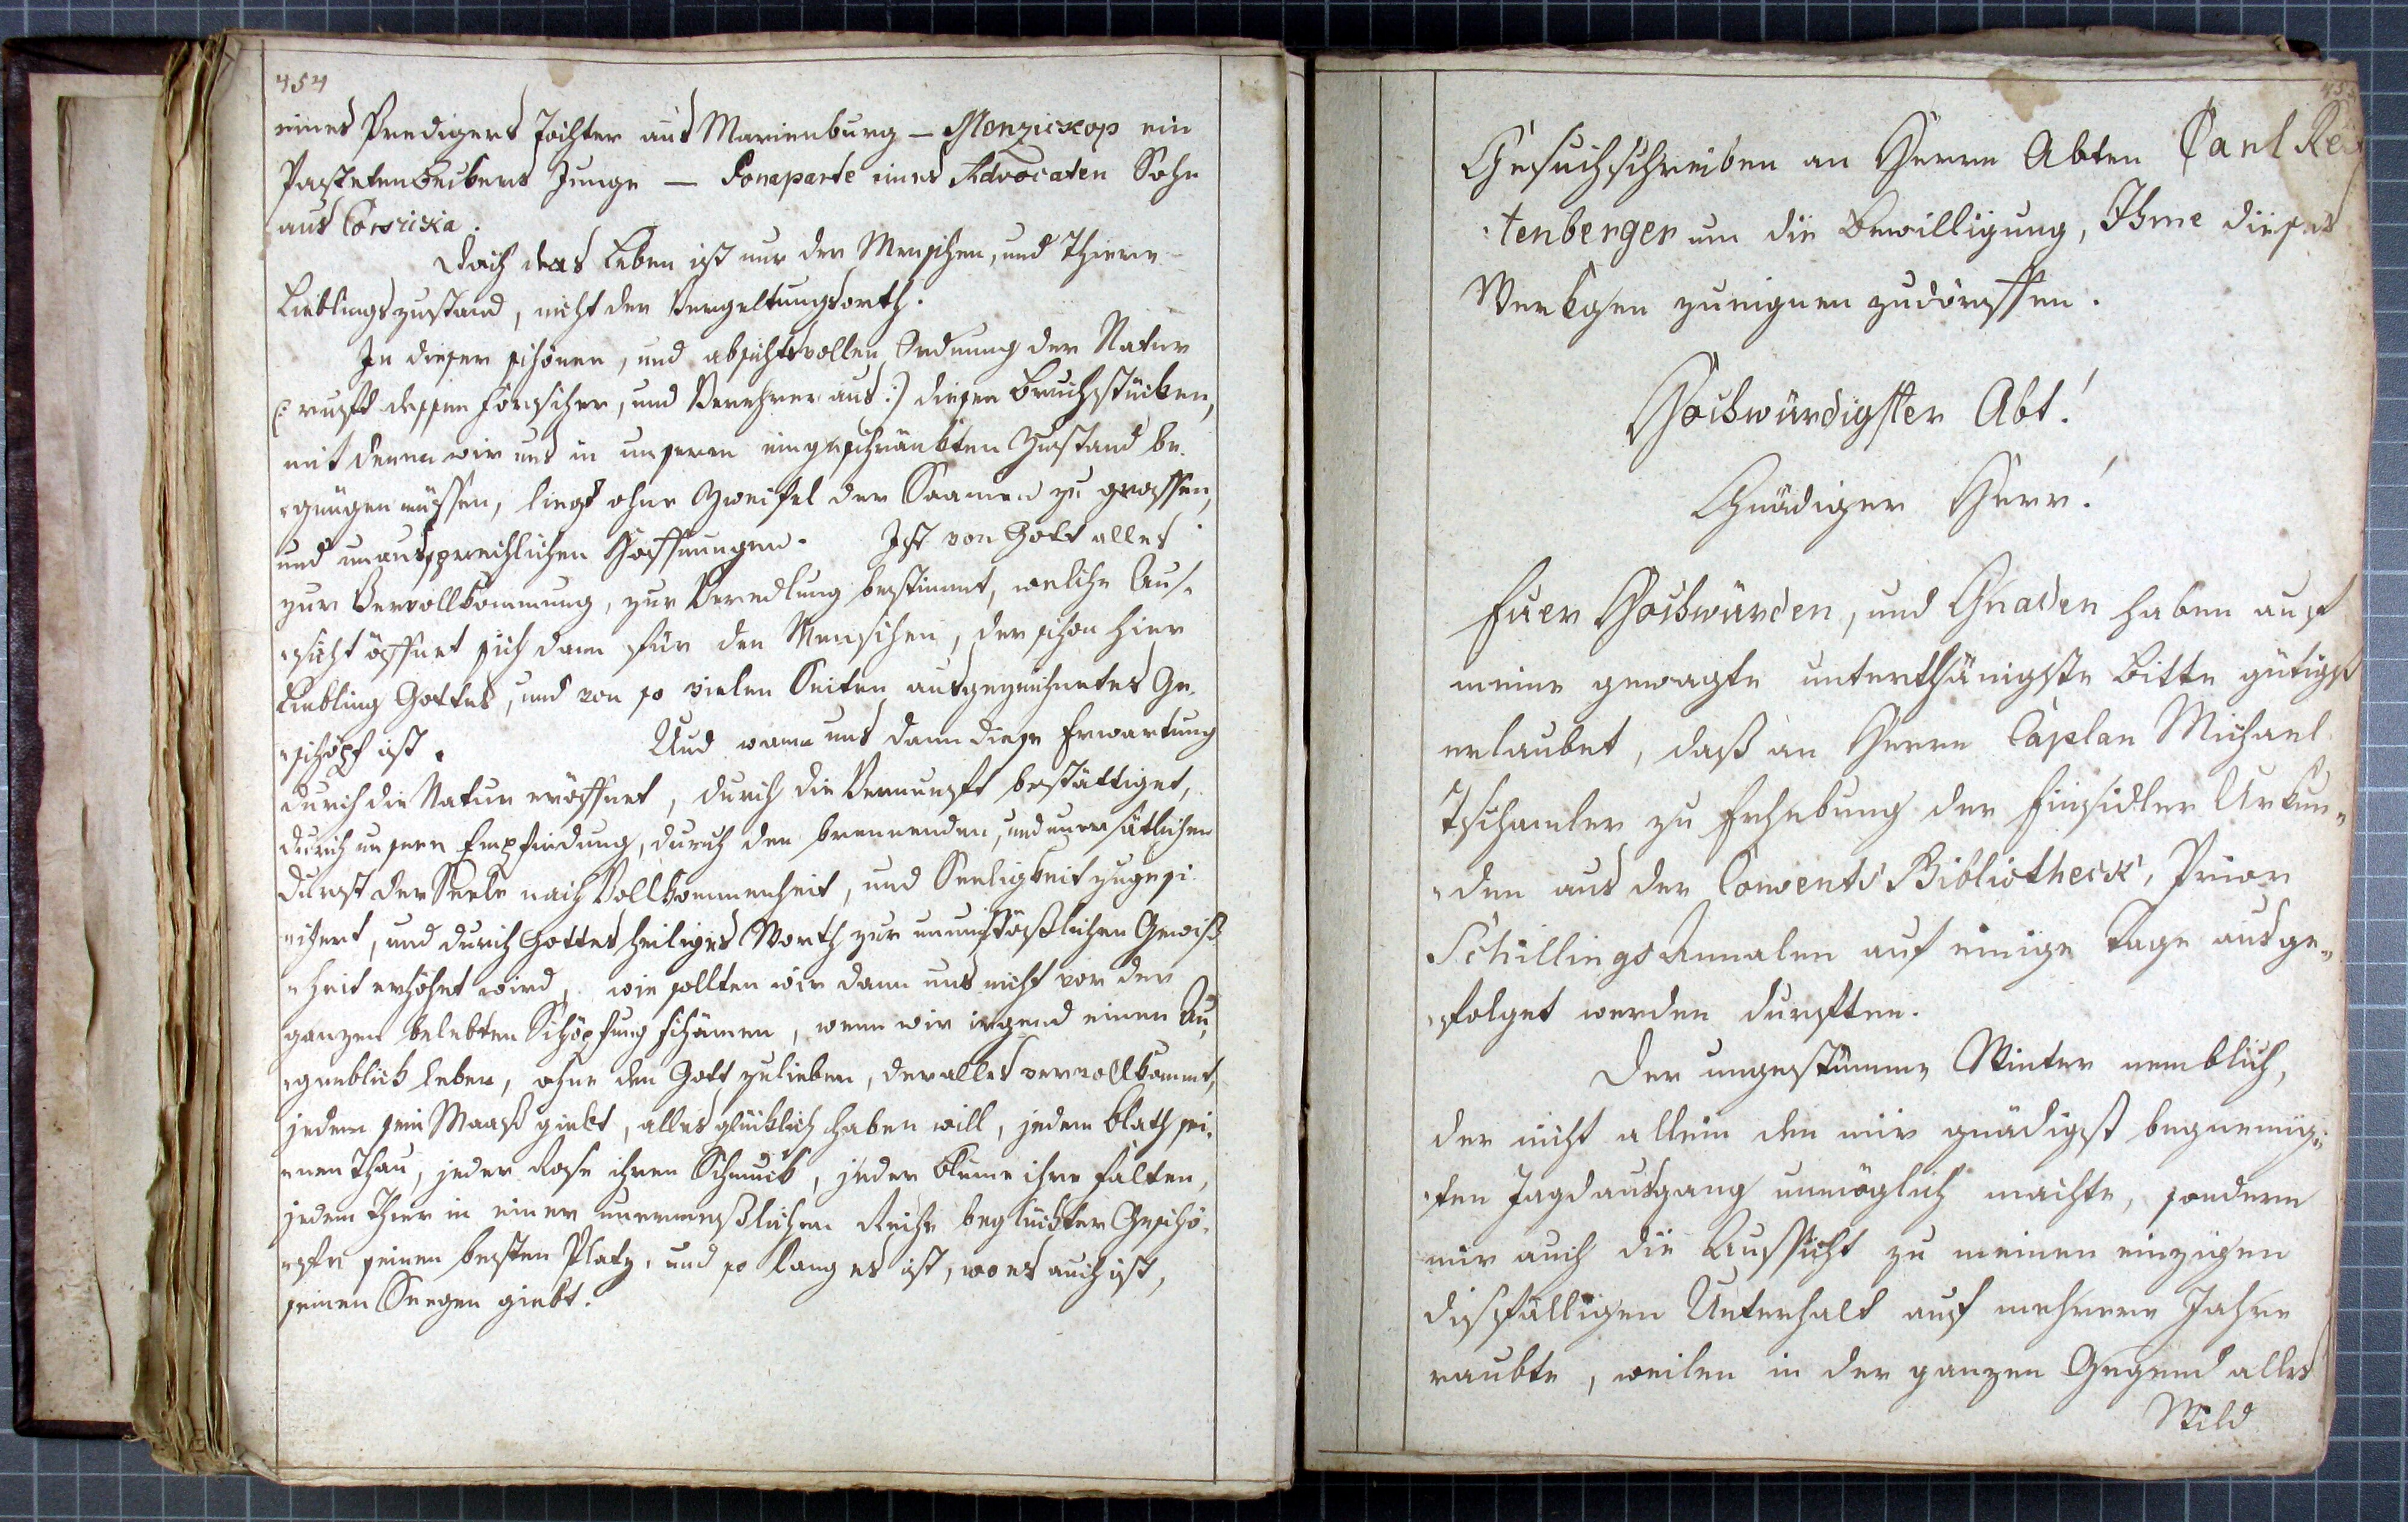 454
eines Predigers Tochter aus Marienburg — Menzickop ein
Pastetenbeckers Junge — Bonaparte eines Advocaten Sohn
aus Corsicka.
Doch das Leben ist nur der Menschen, und Thiere
Lieblingszustand, nicht der Vergeltungsorth.
In dieser schönen, und absichtsvollen Ordnung der Natur
(: ruft dessen Forscher, und Verehrer aus :) diesen Bruchstücken,
mit denen wir uns in unserem eingeschränkten Zustand be„
„gnügen müssen, liegt ohne Zweifel der Saamen zu grossen,
und unaussprechlichen Hoffnungen. Ist von Gott alles
zur Vervollkommung, zur Veredlung bestimmt, welche Aus„
„sicht öffnet sich dann für den Menschen, der schon hier
Liebling Gottes, und von so vielen Seiten ausgezeichnetes Ge„
„schöpf ist. Und wann uns dann diese Erwartung
durch die Natur eröffnet, durch die Vernunft bestättiget,
durch unsere Empfindung, durch den brennenden, und unersätlichen
Durst der Seele nach Vollkommenheit, und Seeligkeit zugesi
„chert, und durch Gottes heiliges Worth zur unumstößlichen Gewiß
„heit erhöhet wird, wie sollten wir dann uns nicht vor der
ganzen belebten Schöpfung schämen, wenn wir irgend einen Au„
„genblick leben, ohne den Gott zulieben, der alles vervollkommt,
jedem sein Maaß giebt, alles glücklich haben will, jedem Blath sei„
„nen Thau, jeder Rose ihren Schmuck, jeder Blume ihre Falten,
jedem Thier in einer unermeßlichen Reihe beglückter Geschö„
„pfe seinen besten Platz, und so lang es ist, wo es auch ist,
seinen Seegen giebt.
455
Gesuchschreiben an Herrn Abten Carl Reit
„tenberger um die Bewilligung, Ihme dieses
Werkgen zueignen zudörffen.
Hochwürdigster Abt!
Gnädiger Herr!
Euer Hochwürden, und Gnaden haben auf
meine gewagte unterthänigste Bitte gütigst
erlaubet, daß an Herrn Caplan Michael
Tschamler zu Erhebung der Einsidler Urkun„
„den aus der Convents Bibliotheck, Prior
Schillings Annalen auf einige Tage ausge„
„folget werden durften.
Der ungestümme Winter nemblich,
der nicht allein den mir gnädigst begnemig„
„ten Jagdausgang unmöglich machte, sondern
mir auch die Aussicht zu meinen einzigen
disfälligen Unterhalt auf mehrere Jahre
raubte, weilen in der ganzen Gegend alles
Wild